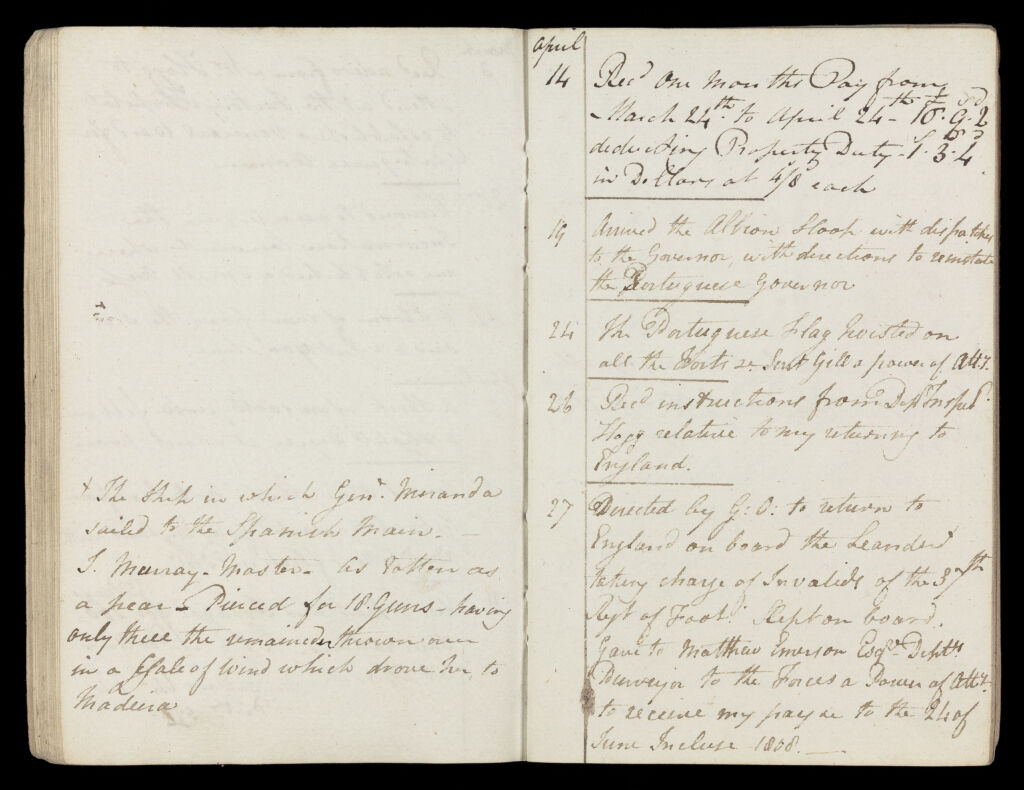 + The Ship in which Genl. Miranda
sailed to the Spanish Main. -
I. Murray - Master - As rotten as
a pear - Pierced for 18. Guns - having
only three the remainder thrown over
in a Gale of Wind which drove her to
Madeira
April
14 Recd One Months Pay from
March 24th. to April 24th - 10. 9. 2
deducting Property Duty - 1. 3. 4
in Dollars at 4/8 each
19 Arrived the Albion Sloop with dispatches
to the Governor, with directions to reinstate
the Portuguese Governor
24 The Portuguese Flag hoisted on
all the Forts &c Sent Gill a power of Atty.
26 Recd instructions from Depy Inspr.
Hogg relative to my returning to
England.
27 Directed by G: O: to return to
England on board the Leander +
taking charge of Invalids of the 3rd
Regt of Foot. Slept on board.
Gave to Matthew Emerson Esqr. Depty
Purveyor to the Forces a Power of Atty.
to receive my pay &c to the 24 of
June Incluse 1808. -